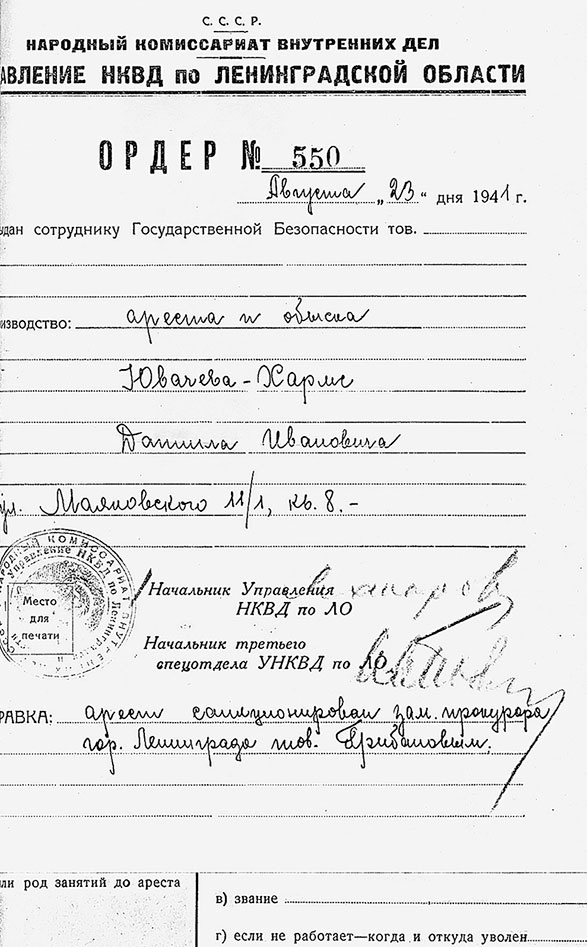 С.С.С.Р.
НАРОДНЫЙ КОМИССАРИАТ ВНУТРЕННИХ ДЕЛ
АВЛЕНИЕ НКВД по ЛЕНИНГРАДСКОЙ ОБЛАСТИ
ОРДЕР № 550
Августа „23“ дня 1941 г.
дан сотруднику Государственной Безопасности тов.
изводство: ареста и обыска
Ювачева-Хармс
Даниила Ивановича
ул. Маяковского 11/1, кв. 8.-
НАРОДНЫЙ КОМИССАРИАТ ВНУТРЕННИХ
Управление НКВД по
Место
для
печати
Начальник Управления
НКВД по ЛО
Начальник третьего
спецотдела УНКВД по ЛО
РАВКА: арест санкционирован зам. прокурора
гор. Ленинграда тов. Грибановым.
ли род занятий до ареста
в) звание
г) если не работает—когда и откуда уволен